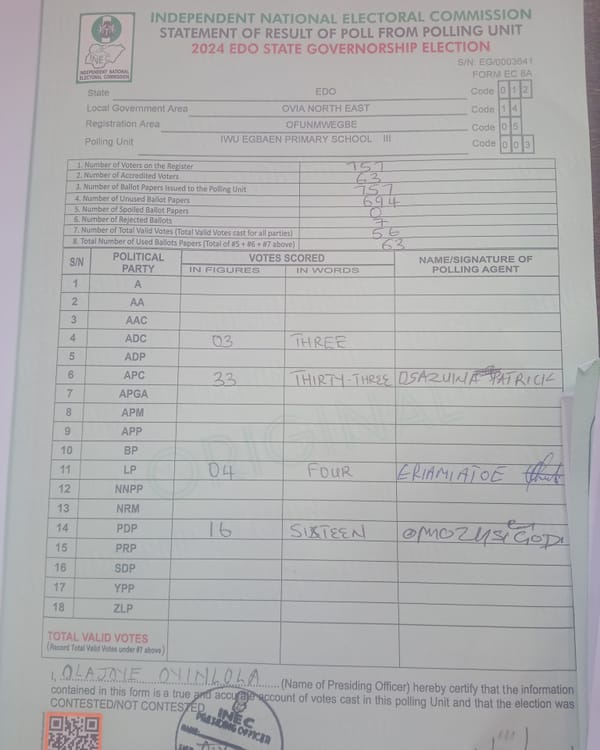 INDEPENDENT NATIONAL ELECTORAL COMMISSION
STATEMENT OF RESULT OF POLL FROM POLLING UNIT
2024 EDO STATE GOVERNORSHIP ELECTION
INEC
INDEPENDENT NATIONAL ELECTORAL COMMISSION
S/N: EG/0003641
FORM EC 8A
State EDO Code 0 1 2
Local Government Area OVIA NORTH EAST Code 1 4
Registration Area OFUNMWEGBE Code 0 5
Polling Unit IWU EGBAEN PRIMARY SCHOOL III Code 0 0 3
1. Number of Voters on the Register 757
2. Number of Accredited Voters 63
3. Number of Ballot Papers Issued to the Polling Unit 757
4. Number of Unused Ballot Papers 694
5. Number of Spoiled Ballot Papers 0
6. Number of Rejected Ballots 7
7. Number of Total Valid Votes (Total Valid Votes cast for all parties) 56
8. Total Number of Used Ballots Papers (Total of #5 + #6 + #7 above) 63
S/N POLITICAL PARTY VOTES SCORED NAME/SIGNATURE OF POLLING AGENT
IN FIGURES IN WORDS
1 A
2 AA
3 AAC
4 ADC 03 THREE
5 ADP
6 APC 33 THIRTY-THREE OSAZUINA PATRICK
7 APGA
8 APM
9 APP
10 BP
11 LP 04 FOUR ERIAMIATOE
12 NNPP
13 NRM
14 PDP 16 SIXTEEN
15 PRP
16 SDP
17 YPP
18 ZLP
ORIGINAL
TOTAL VALID VOTES
(Record Total Valid Votes under #7 above)
I, OLAJOYE OYINLOLA (Name of Presiding Officer) hereby certify that the information
contained in this form is a true and accurate account of votes cast in this polling Unit and that the election was
CONTESTED/NOT CONTESTED
INEC
PRESIDING OFFICER